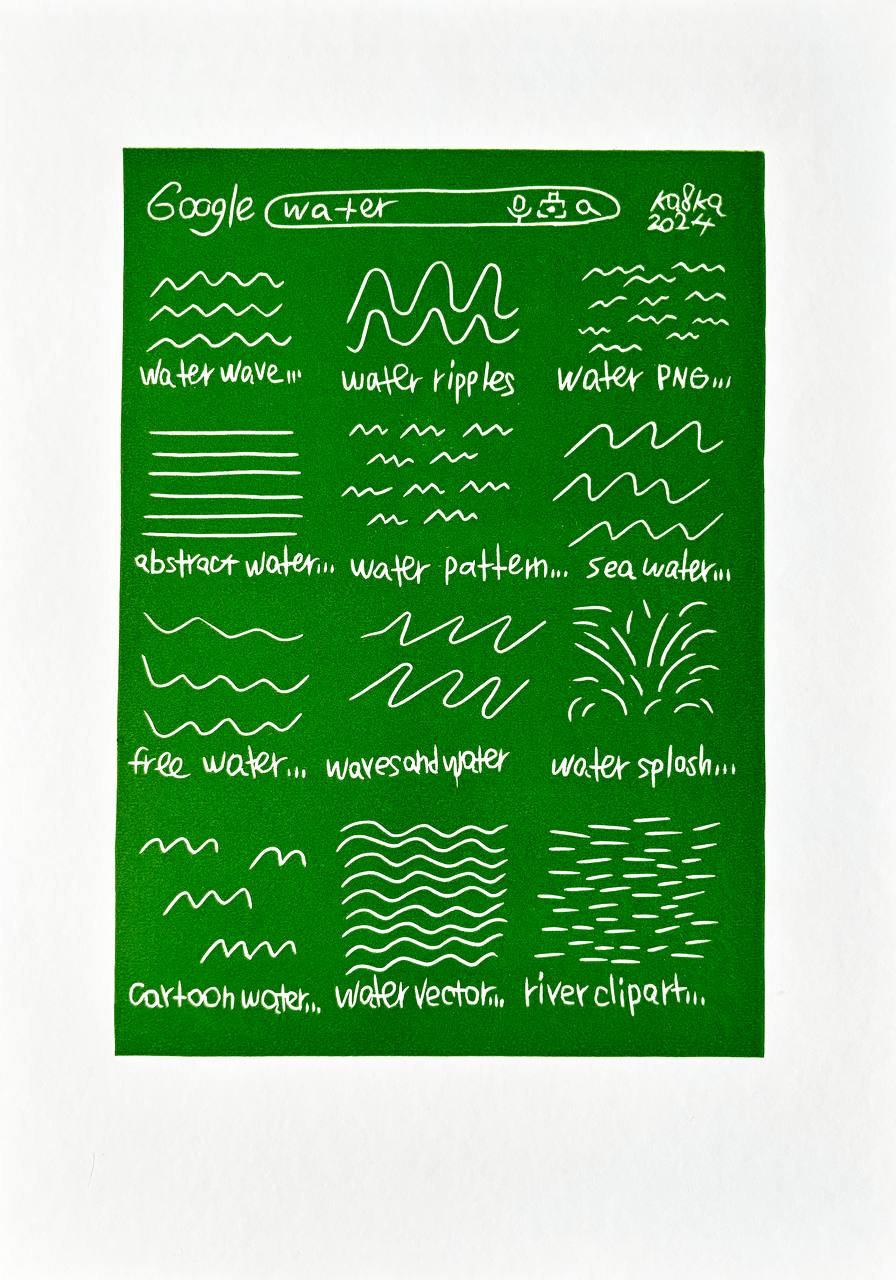 Google water kafka
2024
water wave... water ripples water PNG...
abstract water... water pattern... sea water...
free water... waves and water water splash...
cartoon water... water vector... river clipart...